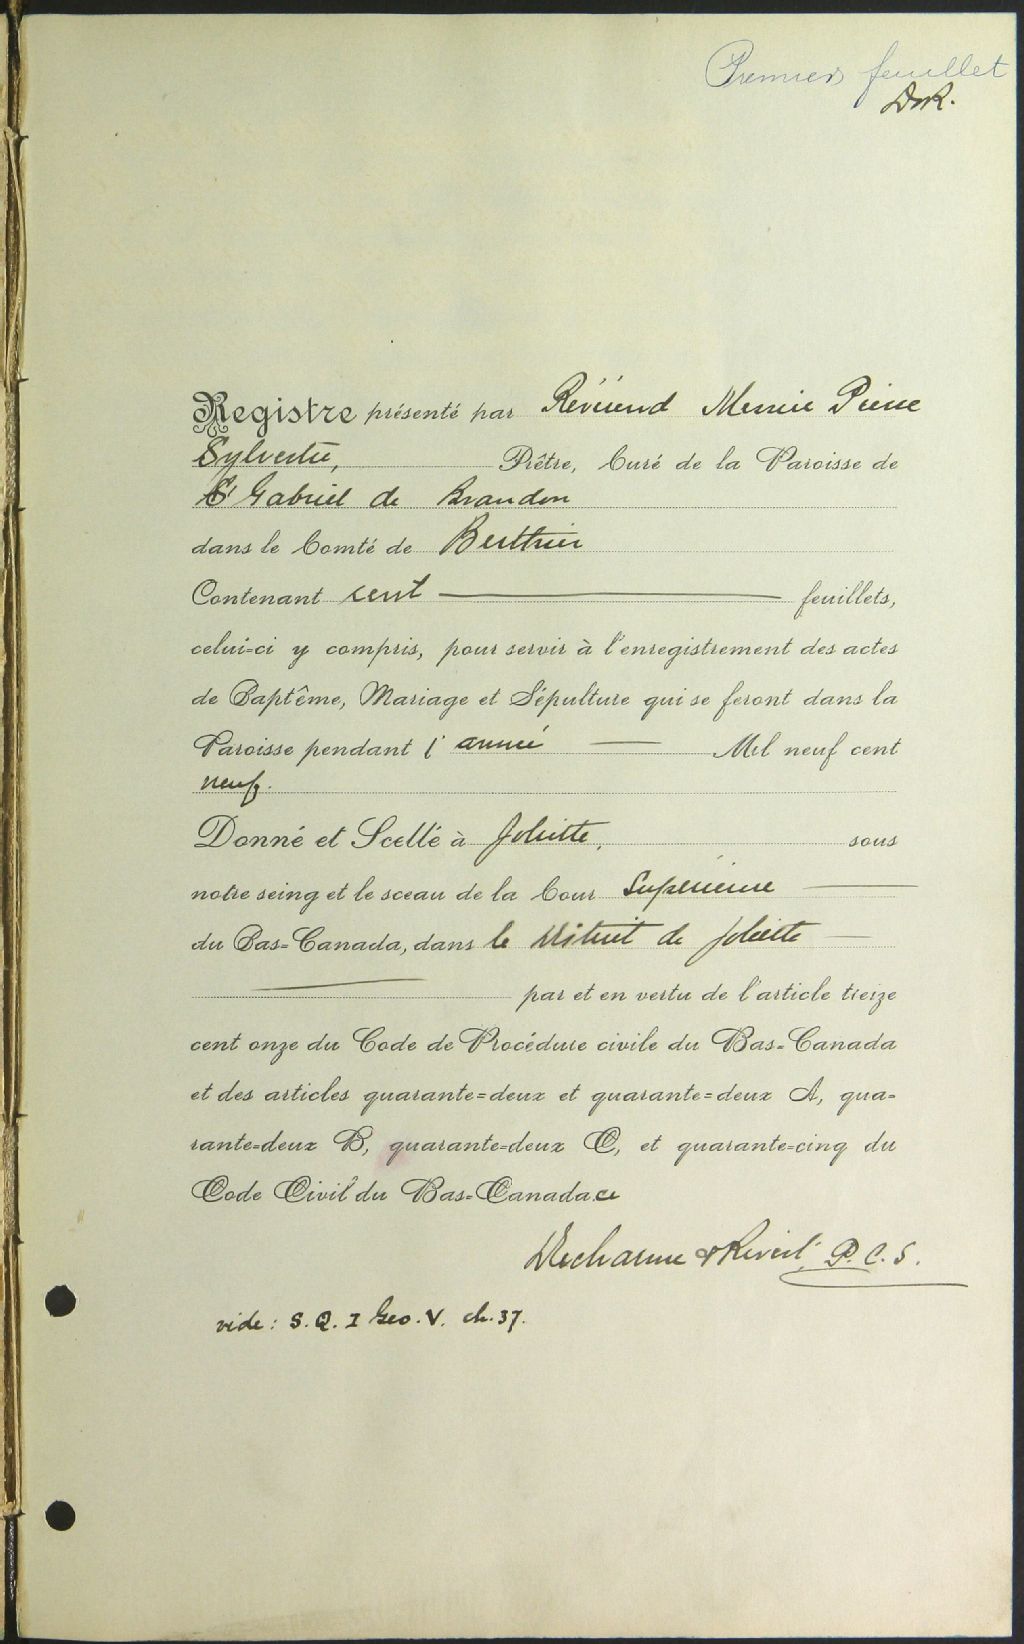 Premier feuillet
D&R.
Registre présenté par Révérend Messire Pierre
Sylvestre, Prêtre, Curé de la Paroisse de
St Gabriel de Brandon
dans le Comté de Berthier
Contenant cent feuillets,
celui-ci y compris, pour servir à l'enregistrement des actes
de Baptême, Mariage et Sépulture qui se feront dans la
Paroisse pendant l'année Mil neuf cent
neuf.
Donné et Scellé à Joliette, sous
notre seing et le sceau de la Cour Supérieure
du Bas-Canada, dans le District de Joliette
par et en vertu de l'article treize
cent onze du Code de Procédure civile du Bas-Canada
et des articles quarante-deux et quarante-deux A, qua-
rante-deux B, quarante-deux C, et quarante-cinq du
Code Civil du Bas-Canada. ce
& Rivest, P.C.S.
vide: S.Q. I Geo. V. ch. 37.